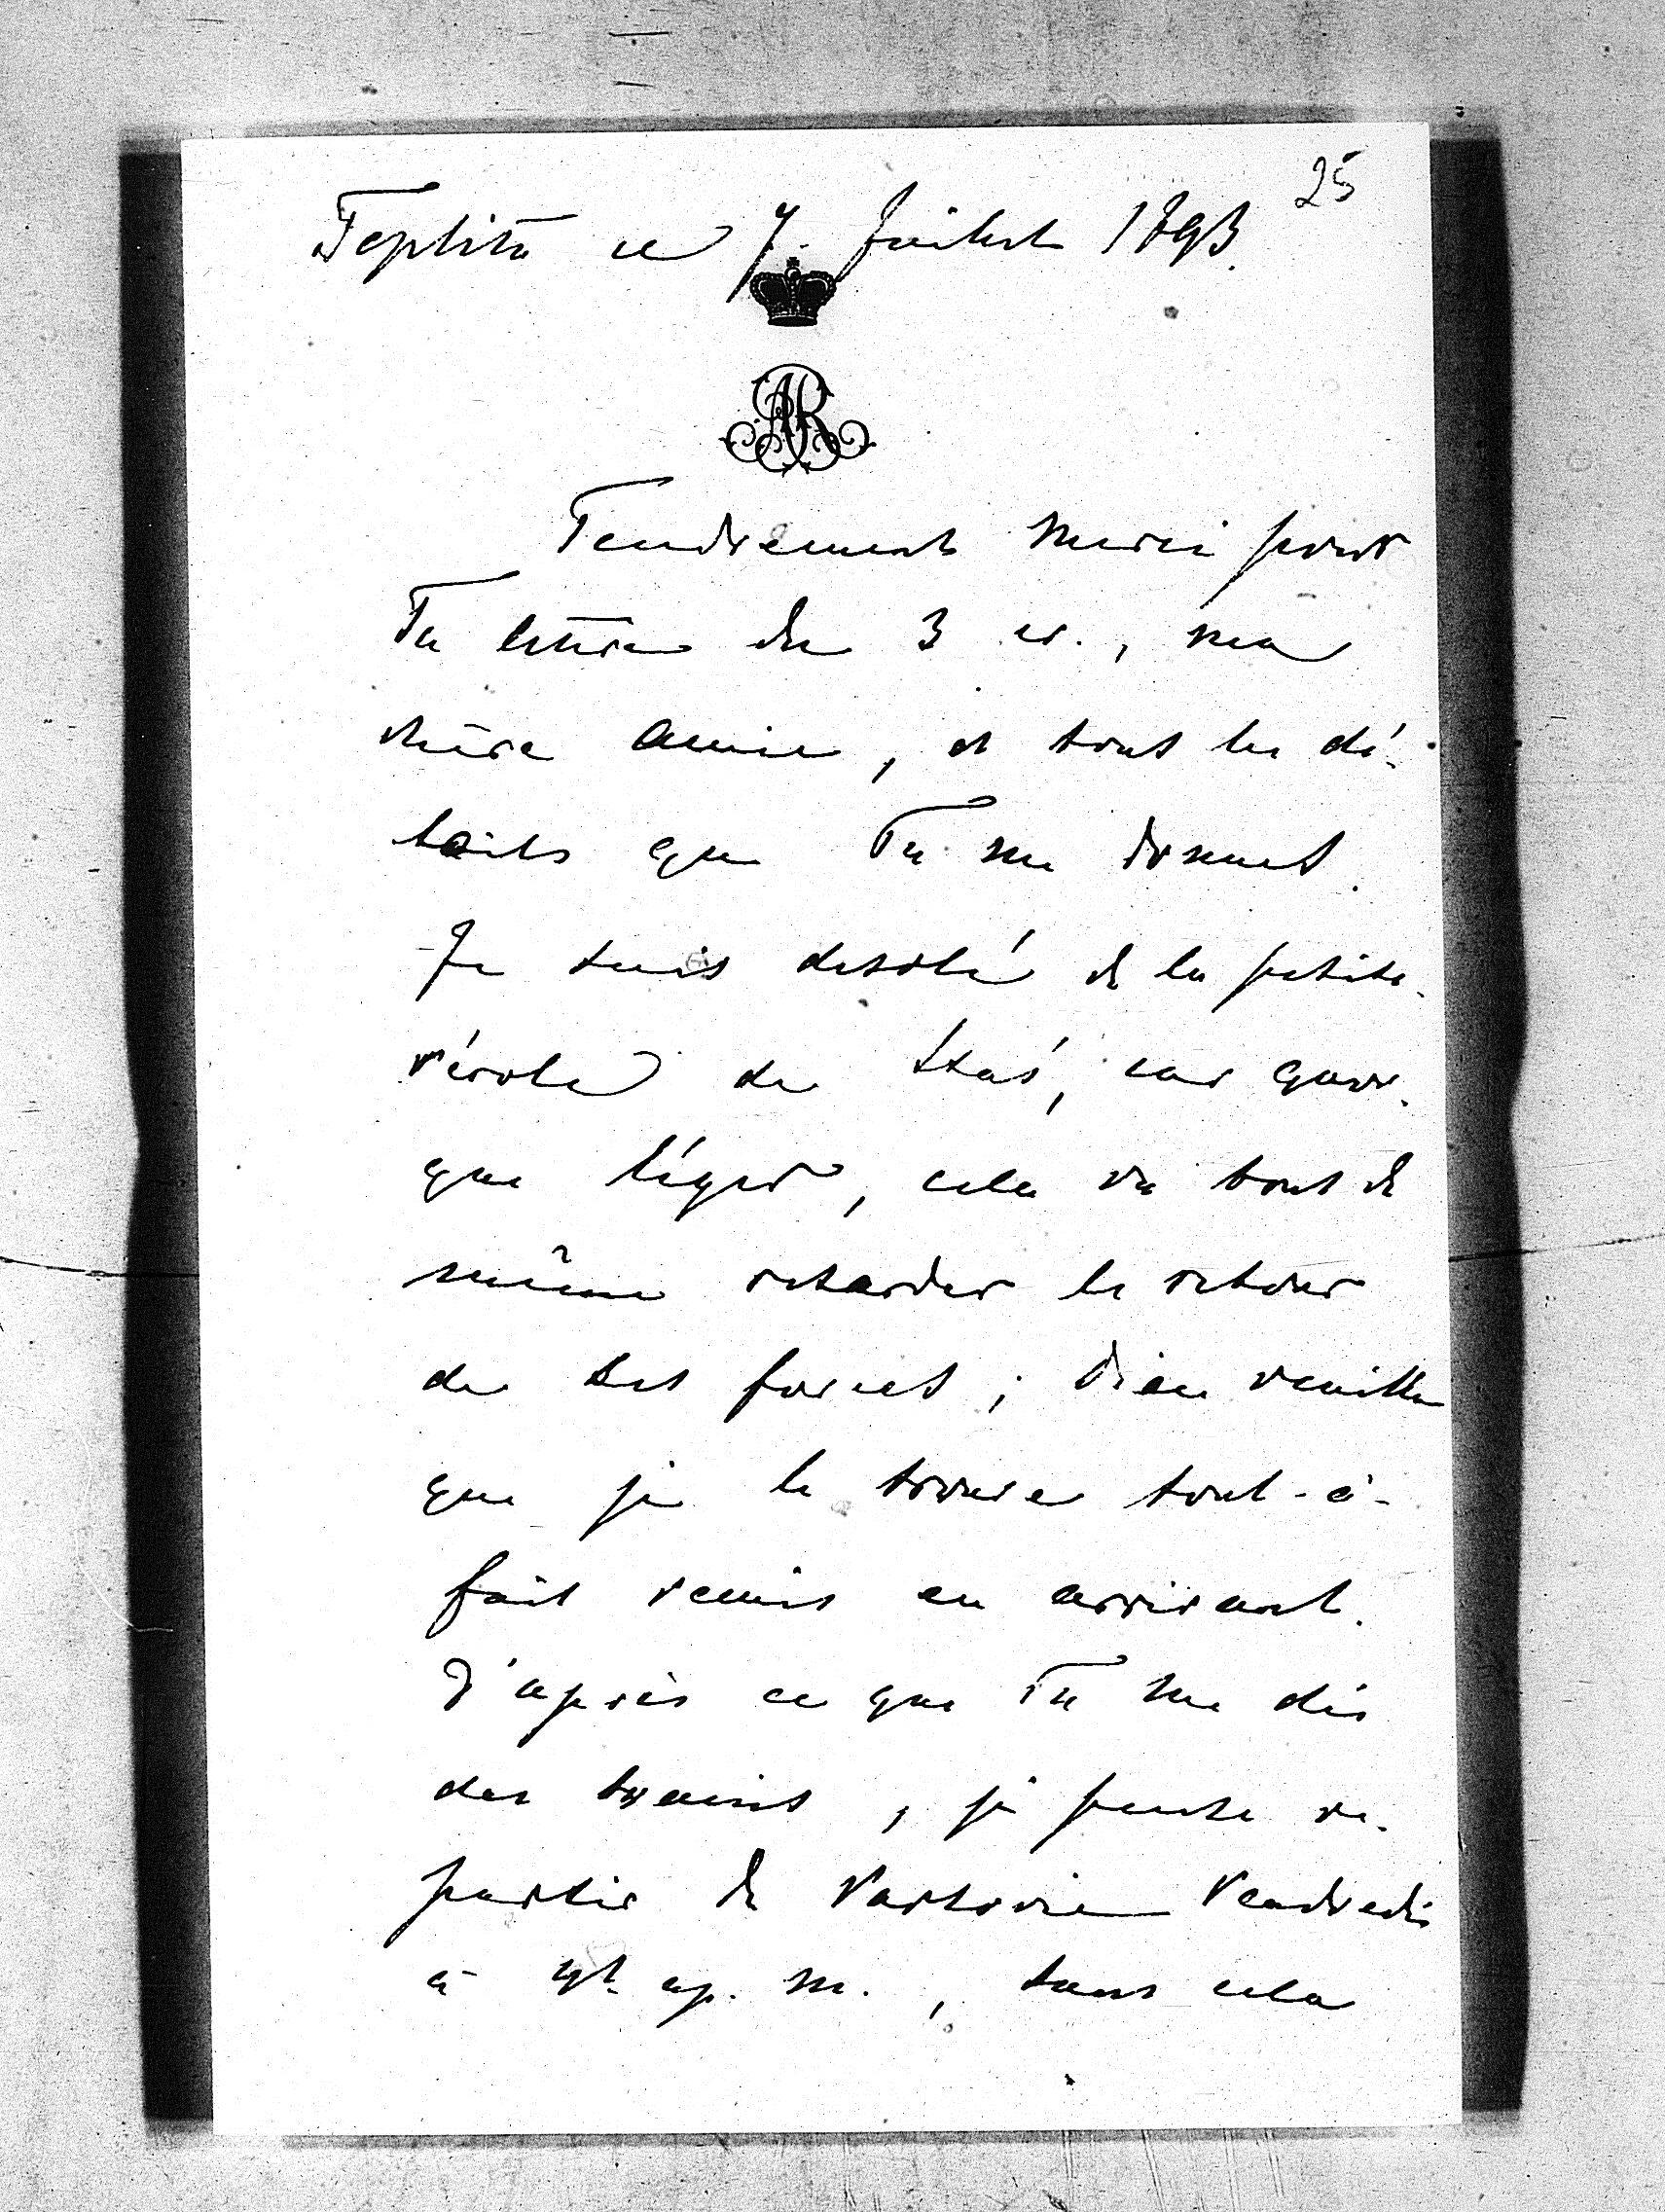 25
Teplitz ce 7. Juillet 1893.
AR
Tendrement merci pour
Ta lettre du 3 cr., ma
chère amie, et tous les dé-
tails que Tu me donnes.
Je suis desolé de la petite-
vérole de Stas, car quoi-
que léger, cela va tout de
même retarder le retour
de ses forces; Dieu veuille
que je le trouve tout-à-
fait remis en arrivant.
D'après ce que Tu me dis
des trains, je pense re-
partir de Varsovie Vendredi
à 4h ap. m., sans cela